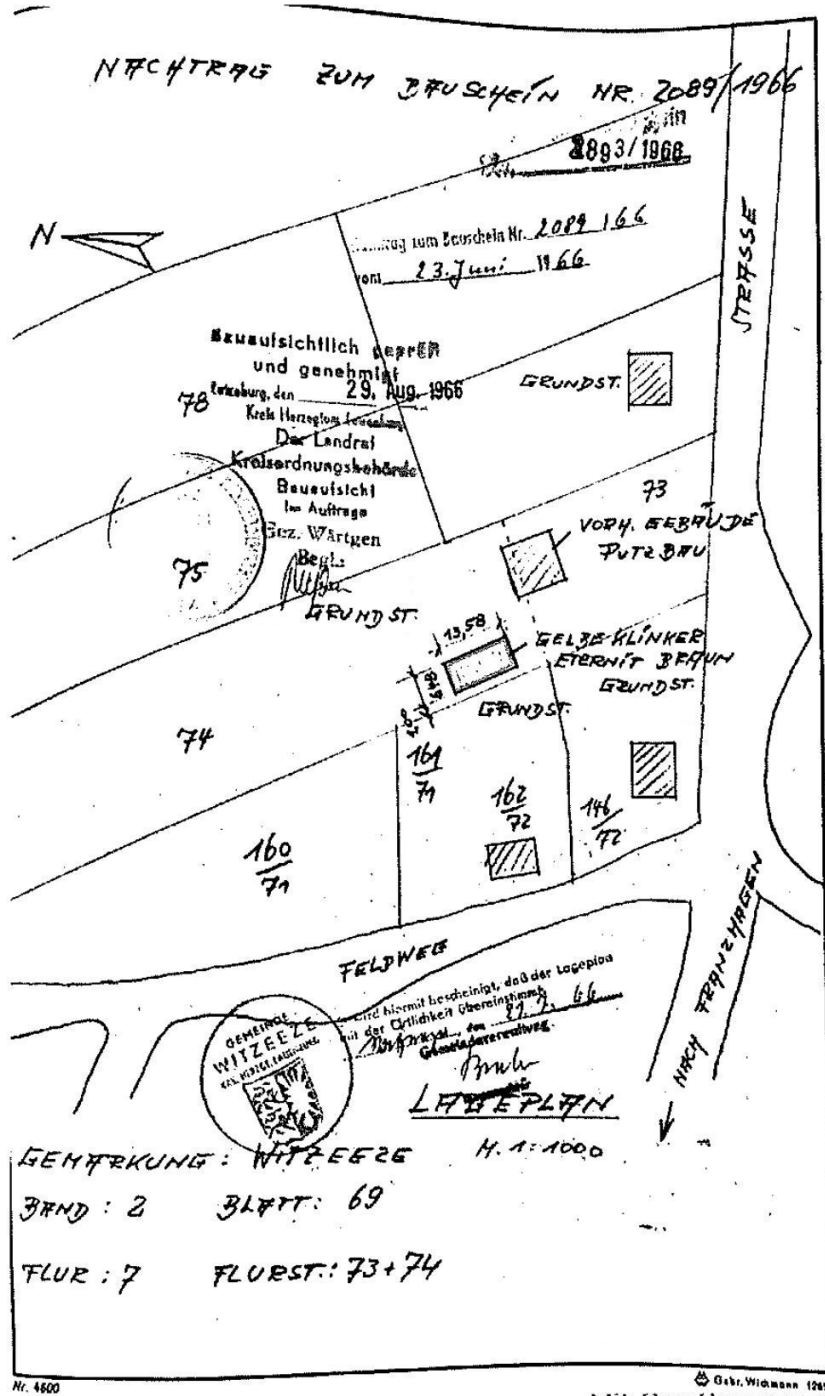 NACHTRAG ZUM BAUSCHEIN NR. 2089/1966
2893/1966
zum Bauschein Nr. 2089 166
vom 23. Juni 1966
N
STRASSE
Bauaufsichtlich geprüft
und genehmigt
Ratzeburg, den 29. Aug. 1966
Kreis Herzogtum Lauenburg
Der Landrat
Kreisordnungsbehörde
Bauaufsicht
Im Auftrage
Gez. Wärtgen
Begl.:
78
75
GRUNDST.
GRUNDST.
73
VORH. GEBÄUDE
PUTZBAU
13,58
GELBE KLINKER
ETERNIT BRAUN
GRUNDST.
GRUNDST.
74
161
71
162
72
146
72
160
71
FELDWEG
NACH FRANZHAGEN
GEMEINDE
WITZEEZE
KRS. HERZGT. LAUENBURG
wird hiermit bescheinigt, daß der Lageplan
mit der Örtlichkeit übereinstimmt
den 21. 7. 66
Gemeindeverwaltung
LAGEPLAN
M. 1:1000
GEMARKUNG: WITZEEZE
BAND: 2 BLATT: 69
FLUR: 7 FLURST.: 73+74
Nr. 4600
Gebr. Wichmann